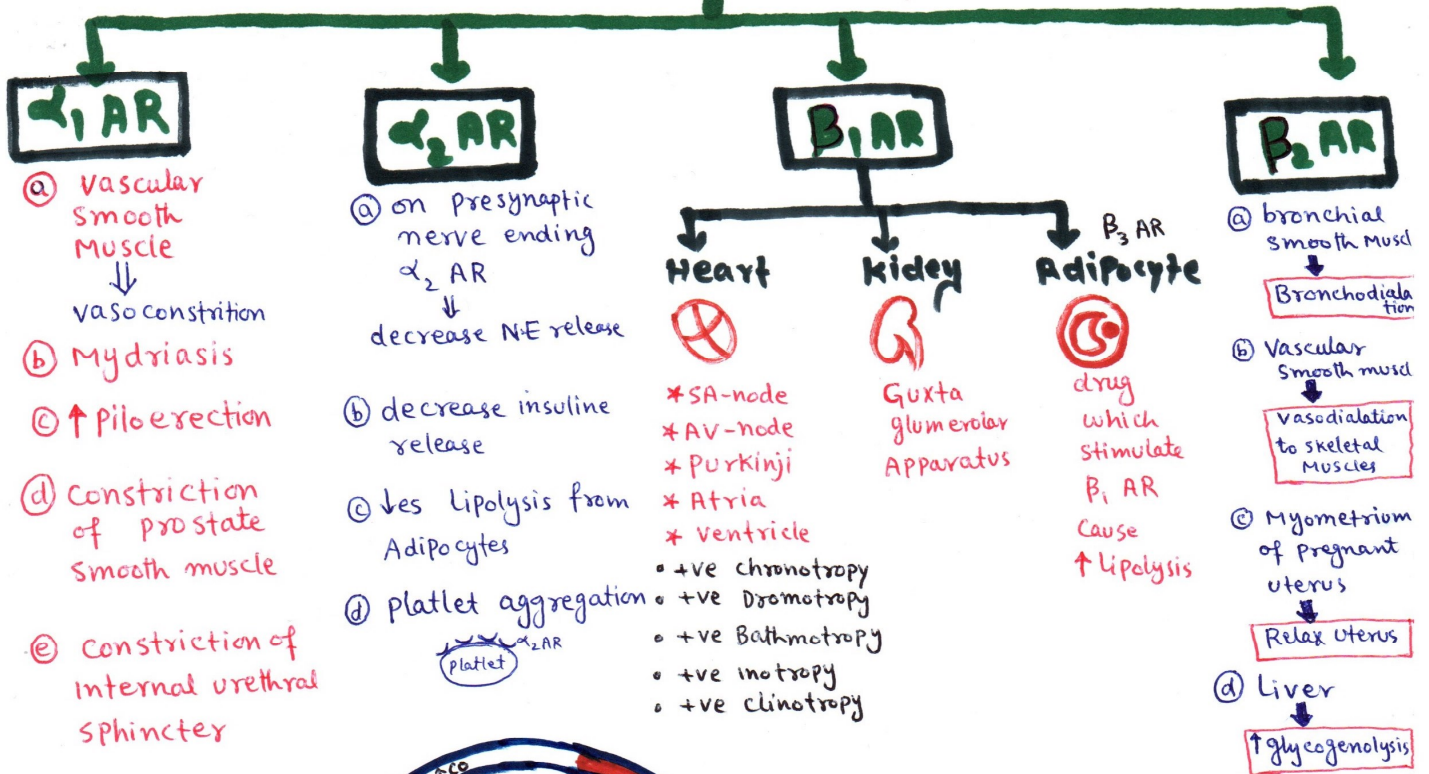 α1 AR
ⓐ Vascular
Smooth
Muscle
⇓
vasoconstrition
ⓑ Mydriasis
ⓒ ↑ Piloerection
ⓓ Constriction
of prostate
Smooth muscle
ⓔ Constriction of
internal urethral
sphincter
α2 AR
ⓐ on presynaptic
nerve ending
α2 AR
⇓
decrease N·E release
ⓑ decrease insuline
release
ⓒ ↓es Lipolysis from
Adipocytes
ⓓ platlet aggregation
α2AR
platlet
β1 AR
Heart
* SA-node
* AV-node
* Purkinji
* Atria
* Ventricle
• +ve chronotropy
• +ve Dromotropy
• +ve Bathmotropy
• +ve inotropy
• +ve clinotropy
Kidey
Guxta
glumerolar
Apparatus
β3 AR
Adipocyte
drug
which
stimulate
β1 AR
Cause
↑ Lipolysis
β2 AR
ⓐ bronchial
smooth Muscl
Bronchodiala
tion
ⓑ Vascular
Smooth muscl
Vasodialation
to skeletal
Muscles
ⓒ Myometrium
of pregnant
uterus
Relax Uterus
ⓓ Liver
↑ glycogenolysis
↑CO